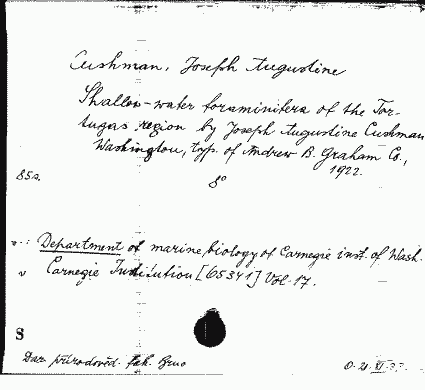 Cushman, Joseph Augustine
Shallow-water foraminifera of the Tor-
tugas region by Joseph Augustine Cushman
Washington, typ. of Andrew B. Graham Co.,
1922.
85a.
8°
v : Department of marine biology of Carnegie inst. of Wash.
v Carnegie Institution [65341] Vol. 17.
S
Dar přírodověd. fak. Brno